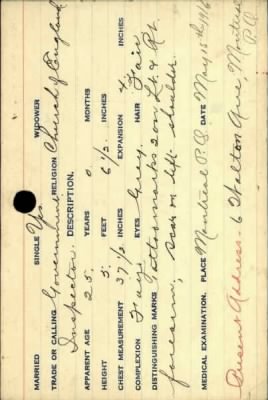 MARRIED SINGLE Yes WIDOWER
TRADE OR CALLING Government RELIGION Church of England
Inspector. DESCRIPTION.
APPARENT AGE 25 YEARS 0 MONTHS
HEIGHT 5 FEET 6 1/2 INCHES
CHEST MEASUREMENT 37 1/2 INCHES EXPANSION 4 INCHES
COMPLEXION Fair EYES Grey HAIR Fair
DISTINGUISHING MARKS Tattoo marks 2 on Lt. & Rt.
forearm, scar on left shoulder
MEDICAL EXAMINATION. PLACE Montreal P.Q. DATE May 15th 1916
Present Address:- 6 Walton Ave, Montreal
P.Q.